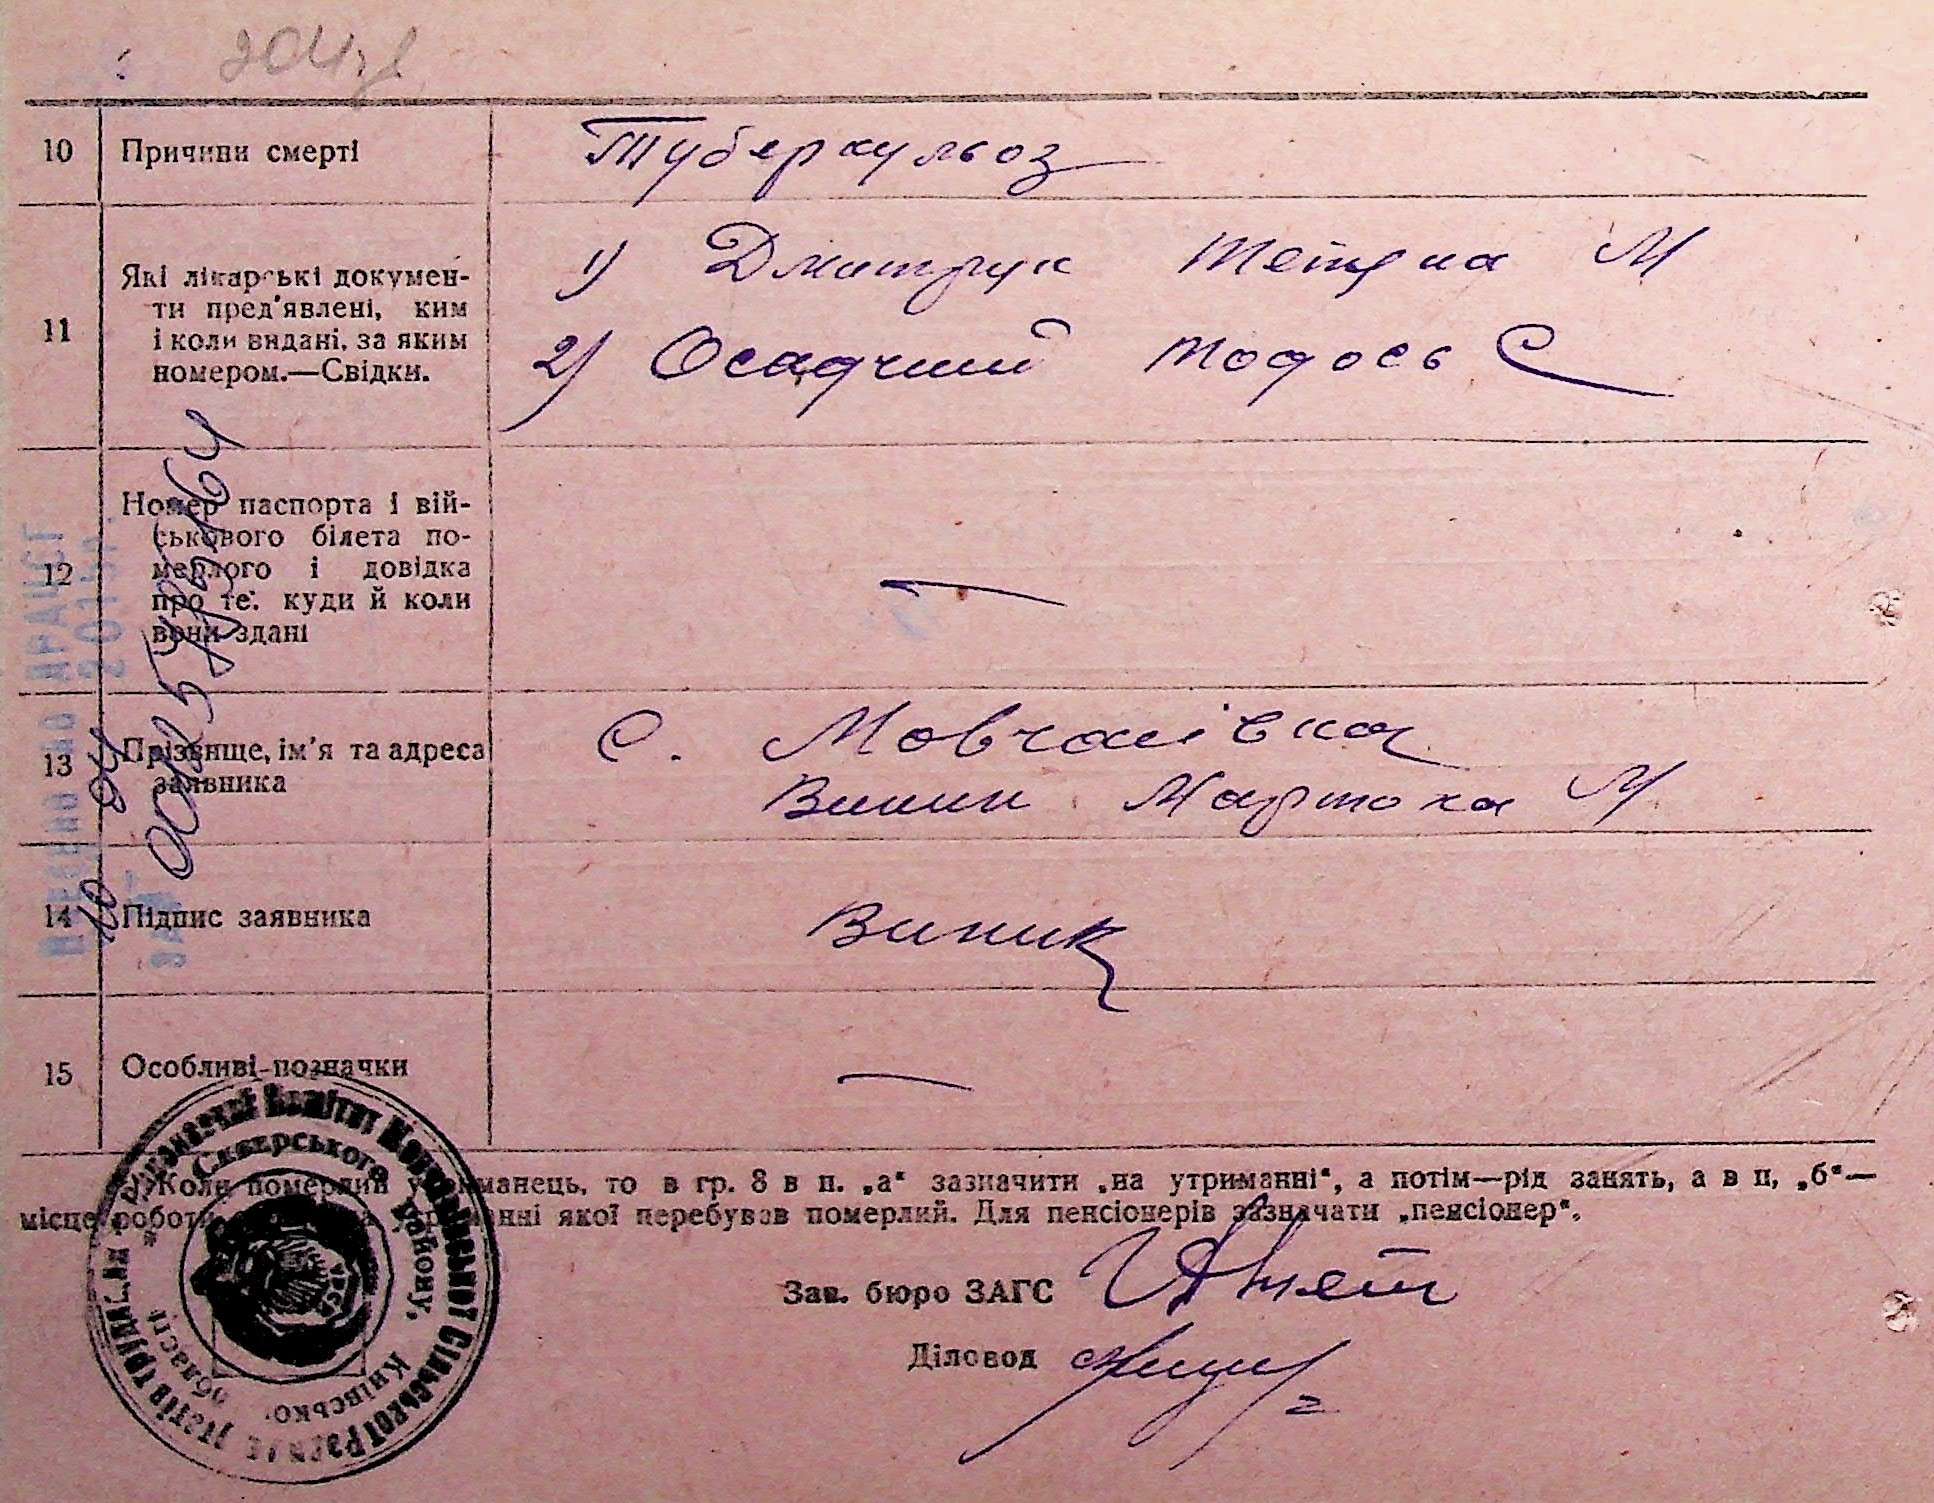 10 Причини смерті Туберкульоз
11 Які лікарські докумен-
ти пред'явлені, ким
і коли видані, за яким
номером.—Свідки.
1) Дмитрук Тетяна М
2) Осадчий Тодось С
12 Номер паспорта і вій-
ськового білета по-
мерлого і довідка
про те: куди й коли
вони здані
—
13 Прізвище, ім'я та адреса
заявника
С. Мовчанівка
Виник Мартоха М
14 Підпис заявника Виник
15 Особливі позначки —
Коли померлий утриманець, то в гр. 8 в п. „а“ зазначити „на утриманні“, а потім—рід занять, а в п, „б“—
місце роботи утриманні якої перебував померлий. Для пенсіонерів зазначати „пенсіонер“.
Зав. бюро ЗАГС
Діловод
Виконавчий Комітет Мовчанівської Сільської Ради Депутатів Трудящих
Сквирського Району, Київської області
УРСР